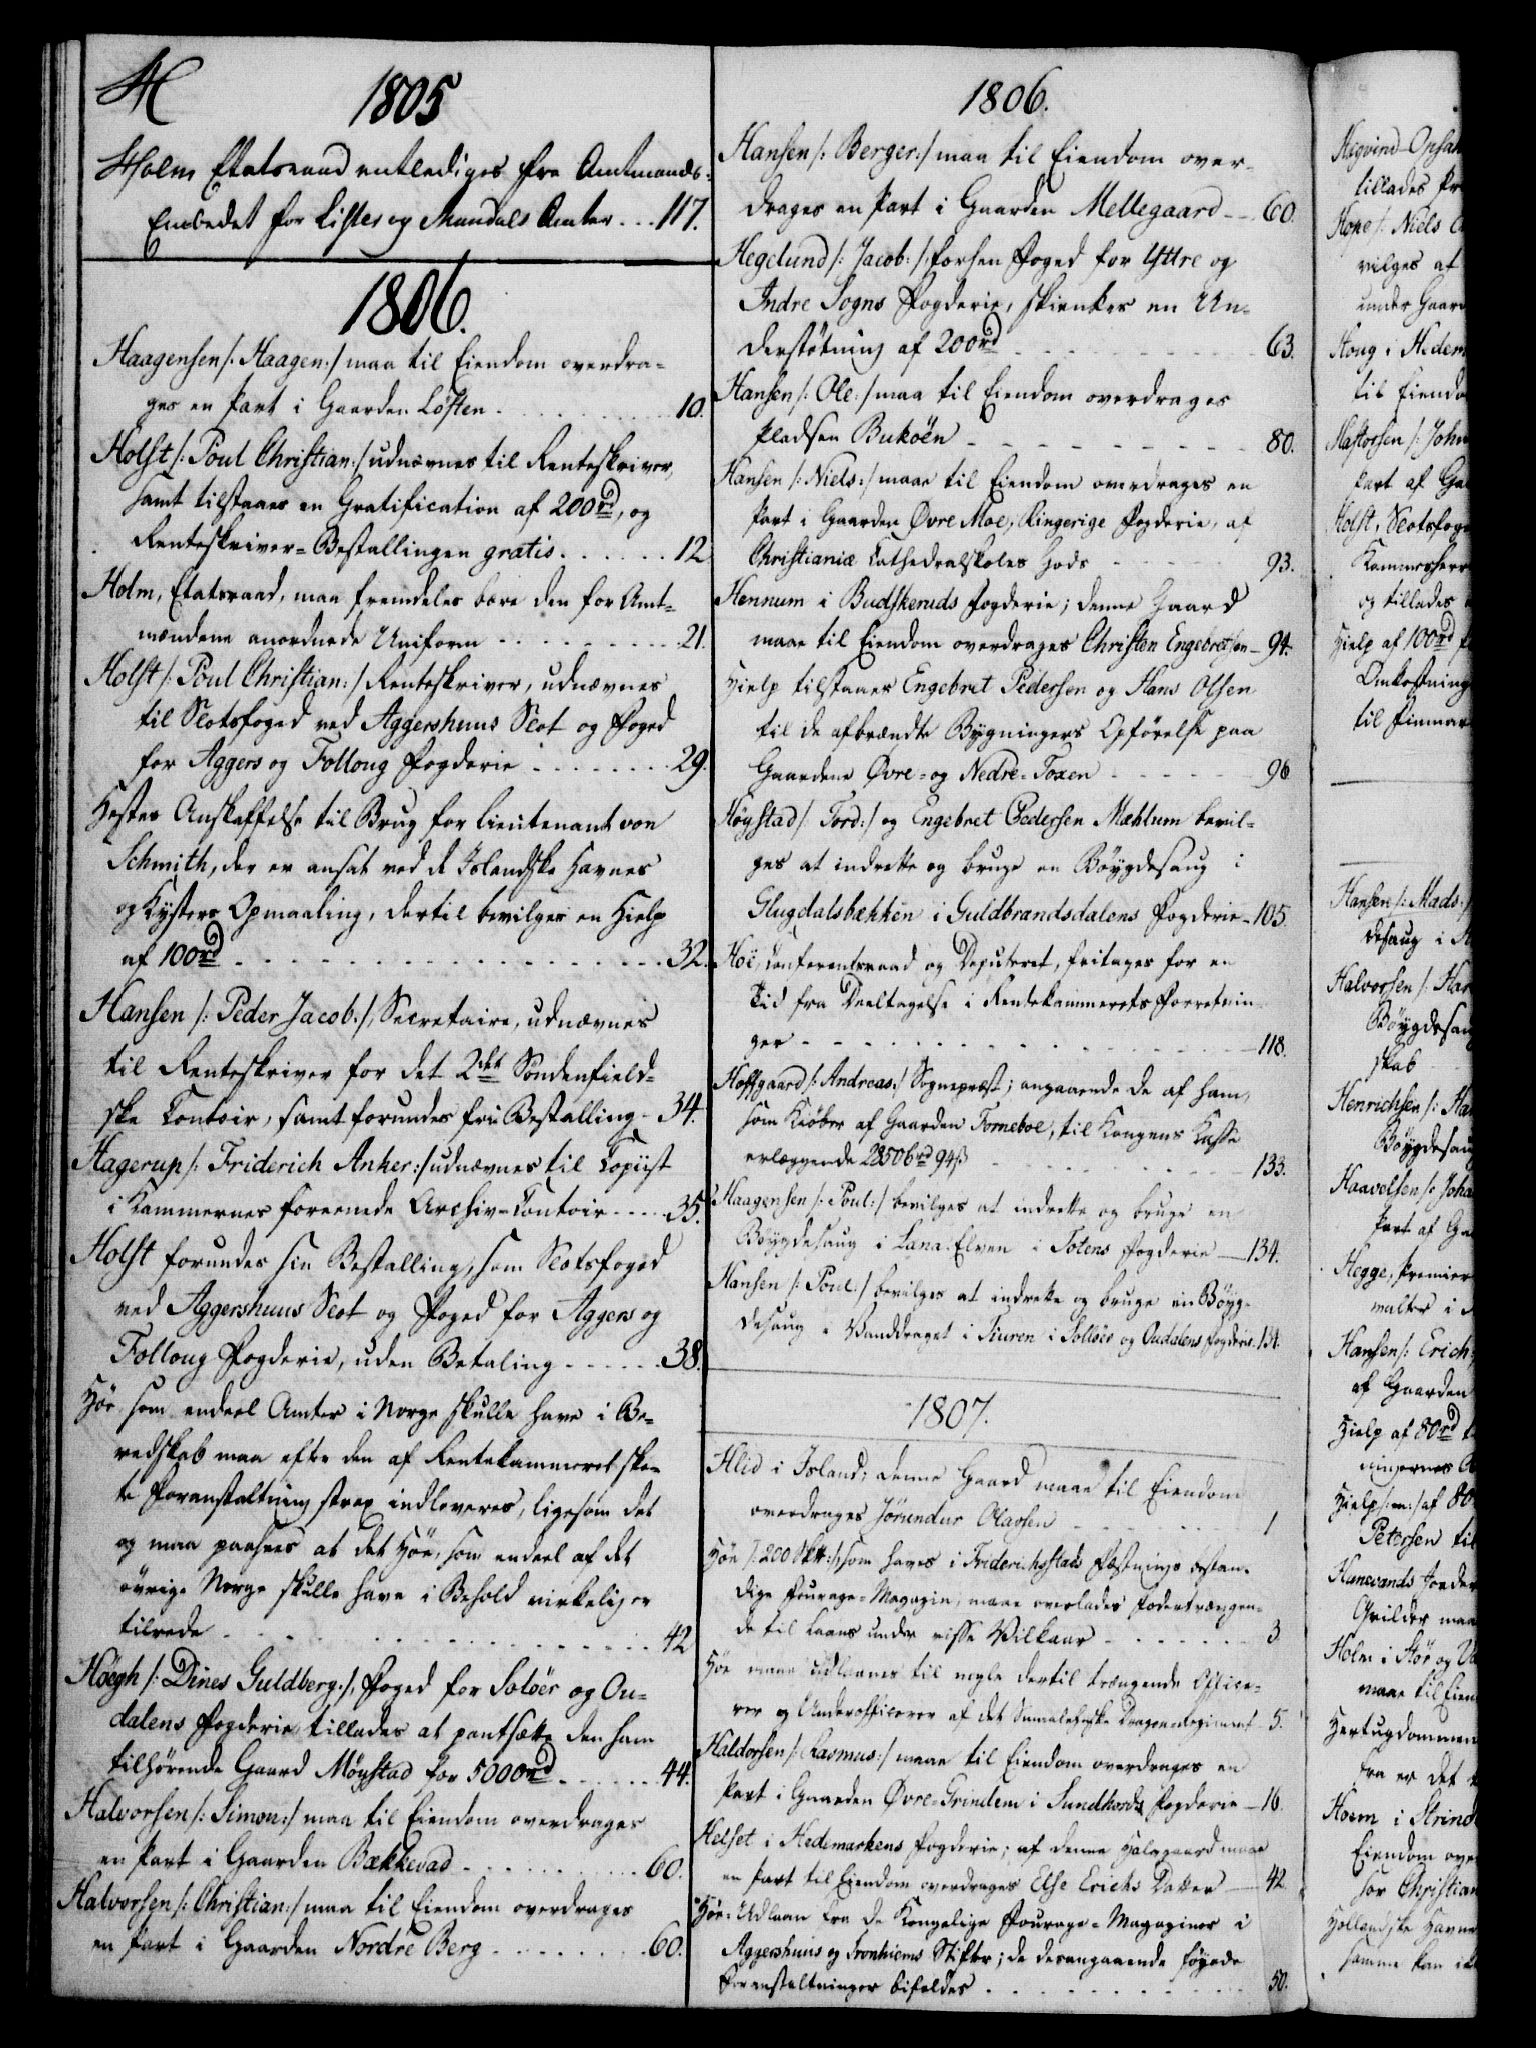 H
1805
Holm Etatsraad entlediges fra Amtmands-
Embedet for Lister og Mandals Amter . . . 117.
1806.
Haagensen /: Haagen :/ maa til Eiendom overdra-
ges en Part i Gaarden Løften . . . 10.
Holst /: Poul Christian :/ udnævnes til Renteskriver,
samt tilstaaes en Gratification af 200rd, og
Renteskriver-Bestallingen gratis . . . 12
Holm, Etatsraad, maa fremdeles bære den for Amt-
mændene anordnede Uniform . . . 21.
Holst /: Poul Christian :/ Renteskriver, udnævnes
til Slotsfoged ved Aggershuus Slot og Foged
for Aggers og Folloug Fogderie . . . 29.
Hestes Anskaffelse til Brug for Lieutenant von
Schmith, der er ansat ved de Islandske Havnes
og Kysters Opmaaling, dertil bevilges en Hielp
af 100rd . . . 32.
Hansen /: Peder Jacob :/, Secretaire, udnævnes
til Renteskriver for det 2det Söndenfield-
ske Contoir, samt forundes frie Bestalling - 34.
Hagerup /: Friderich Anker :/ udnævnes til Copiist
i Kammerets foreenede Archiv-Contoir . . . 35.
Holst forundes sin Bestalling, som Slotsfoged
ved Aggershuus Slot og Foged for Aggers og
Follong Fogderie, uden Betaling . . . 38.
Höe som endeel Amter i Norge skulle have i Be-
redskab maa efter den af Rentekammeret ske-
te Foranstaltning strax indleveres, ligesom det
og maa paasees at det Höe, som endeel af det
övrige Norge skulle have i Behold virkelig er
tilrede . . . 42
Höegh /: Dines Guldberg :/, Foged for Solöer og Ou-
dalens Fogderie, tillades at pantsætte den ham
tilhörende Gaard Möystad for 5000rd . . . 44.
Halvorsen /: Simon :/ maa til Eiendom overdrages
en Part i Gaarden Bækkevad . . . 60.
Halvorsen /: Christian :/ maa til Eiendom overdrages
en Part i Gaarden Nordre Berg . . . 60.
1806.
Hansen /: Berger :/ maa til Eiendom over-
drages en Part i Gaarden Mellegaard - - 60.
Hegelund /: Jacob :/, forhen Foged for Yttre og
Indre Sogns Fogderie, skienkes en Un-
derstøtning af 200rd . . . 63.
Hansen /: Ole :/ maa til Eiendom overdrages
Pladsen Buköen . . . 80.
Hansen /: Niels :/ maae til Eiendom overdrages en
Part i Gaarden Øvre Moe, Ringerige Fogderie, af
Christianiæ Cathedralskoles Gods . . . 93.
Hennum i Budskeruds Fogderie; denne Gaard
maae til Eiendom overdrages Christen Engebretsen - 94.
Hielp tilstaaes Engebret Pedersen og Hans Olsen
til de afbrændte Bygningers Opförelse paa
Gaardene Øvre- og Nedre-Toxen . . . 96
Høystad /: Tord :/ og Engebret Pedersen Mæhlum bevil-
ges at indrette og bruge en Böygdesaug i
Glugdalsbækken i Guldbrandsdalens Fogderie - 105.
Hoë, Conferentsraad og Deputeret, fritages for en
Tid fra Deeltagelse i Rentekammerets Forretnin-
ger . . . 118.
Hoffgaard /: Andreas :/ Sognepræst; angaaende de af ham,
som Kiöber af Gaarden Forneboe, til Kongens Kasse
erlæggende 23506rd 94ß . . . 133.
Haagensen /: Poul :/ bevilges at indrette og bruge en
Böygdesaug i Lena-Elven i Totens Fogderie - 134.
Hansen /: Poul :/ bevilges at indrette og bruge en Böyg-
desaug i Vanddraget i Fiuren i Solöer og Oudalens Fogderie - 134.
1807.
Hlid i Island, denne Gaard maae til Eiendom
overdrages Jörundur Olassen . . . 1
Höe /: 200 Sk℔ :/, som haves i Friderichsstads Fæstnings bestan-
dige Fourage-Magazin, maae overlades Fodertrængen-
de til Laans under visse Vilkaar . . . 3
Höe maae udlaanes til nogle dertil trængende Office-
rer og Underofficerer af det Smaalehnske Dragonregiment - 5.
Haldorsen /: Rasmus :/ maae til Eiendom overdrages en
Part i Gaarden Øvre-Grindem i Sundhords Fogderie - 16.
Helset i Hedemarkens Fogderie; af denne Halvgaard maae
en Part til Eiendom overdrages Else Erichs Datter - 42.
Höe-Udlaan fra de Kongelige Fourage-Magaziner i
Aggershuus og Tronhiems Stifter; de desangaaende föyede
Foranstaltninger bifaldes . . . 50.
Hegvind
tillades
Hope /: Niels
vilges af
under Gaard
Houg i Hedem
til Eiendo
Hastorsen /: John
Part af Ga
Holst, Slotsfoge
Kammerherr
og tillades
Hielp af 100rd
Omkostning
til Finmar
Hansen /: Mads :/
desaug i
Halvorsen /: Har
Böygdesau
skab
Henrichsen /: Ha
Böygdesau
Haavelsen /: Joha
Part af Ga
Hegge, Premier
Hansen /: Erich
af Gaarden
Hielp af 80rd
ningernes
Hielp /: m :/ af 80
Petersen til
Hanevands
Holm i Stör og
maae til Eien
Hertugdommen
fra er det
Hoem i Strind
Eiendom ove
sor Christian
Hollandske Havne
samme kan